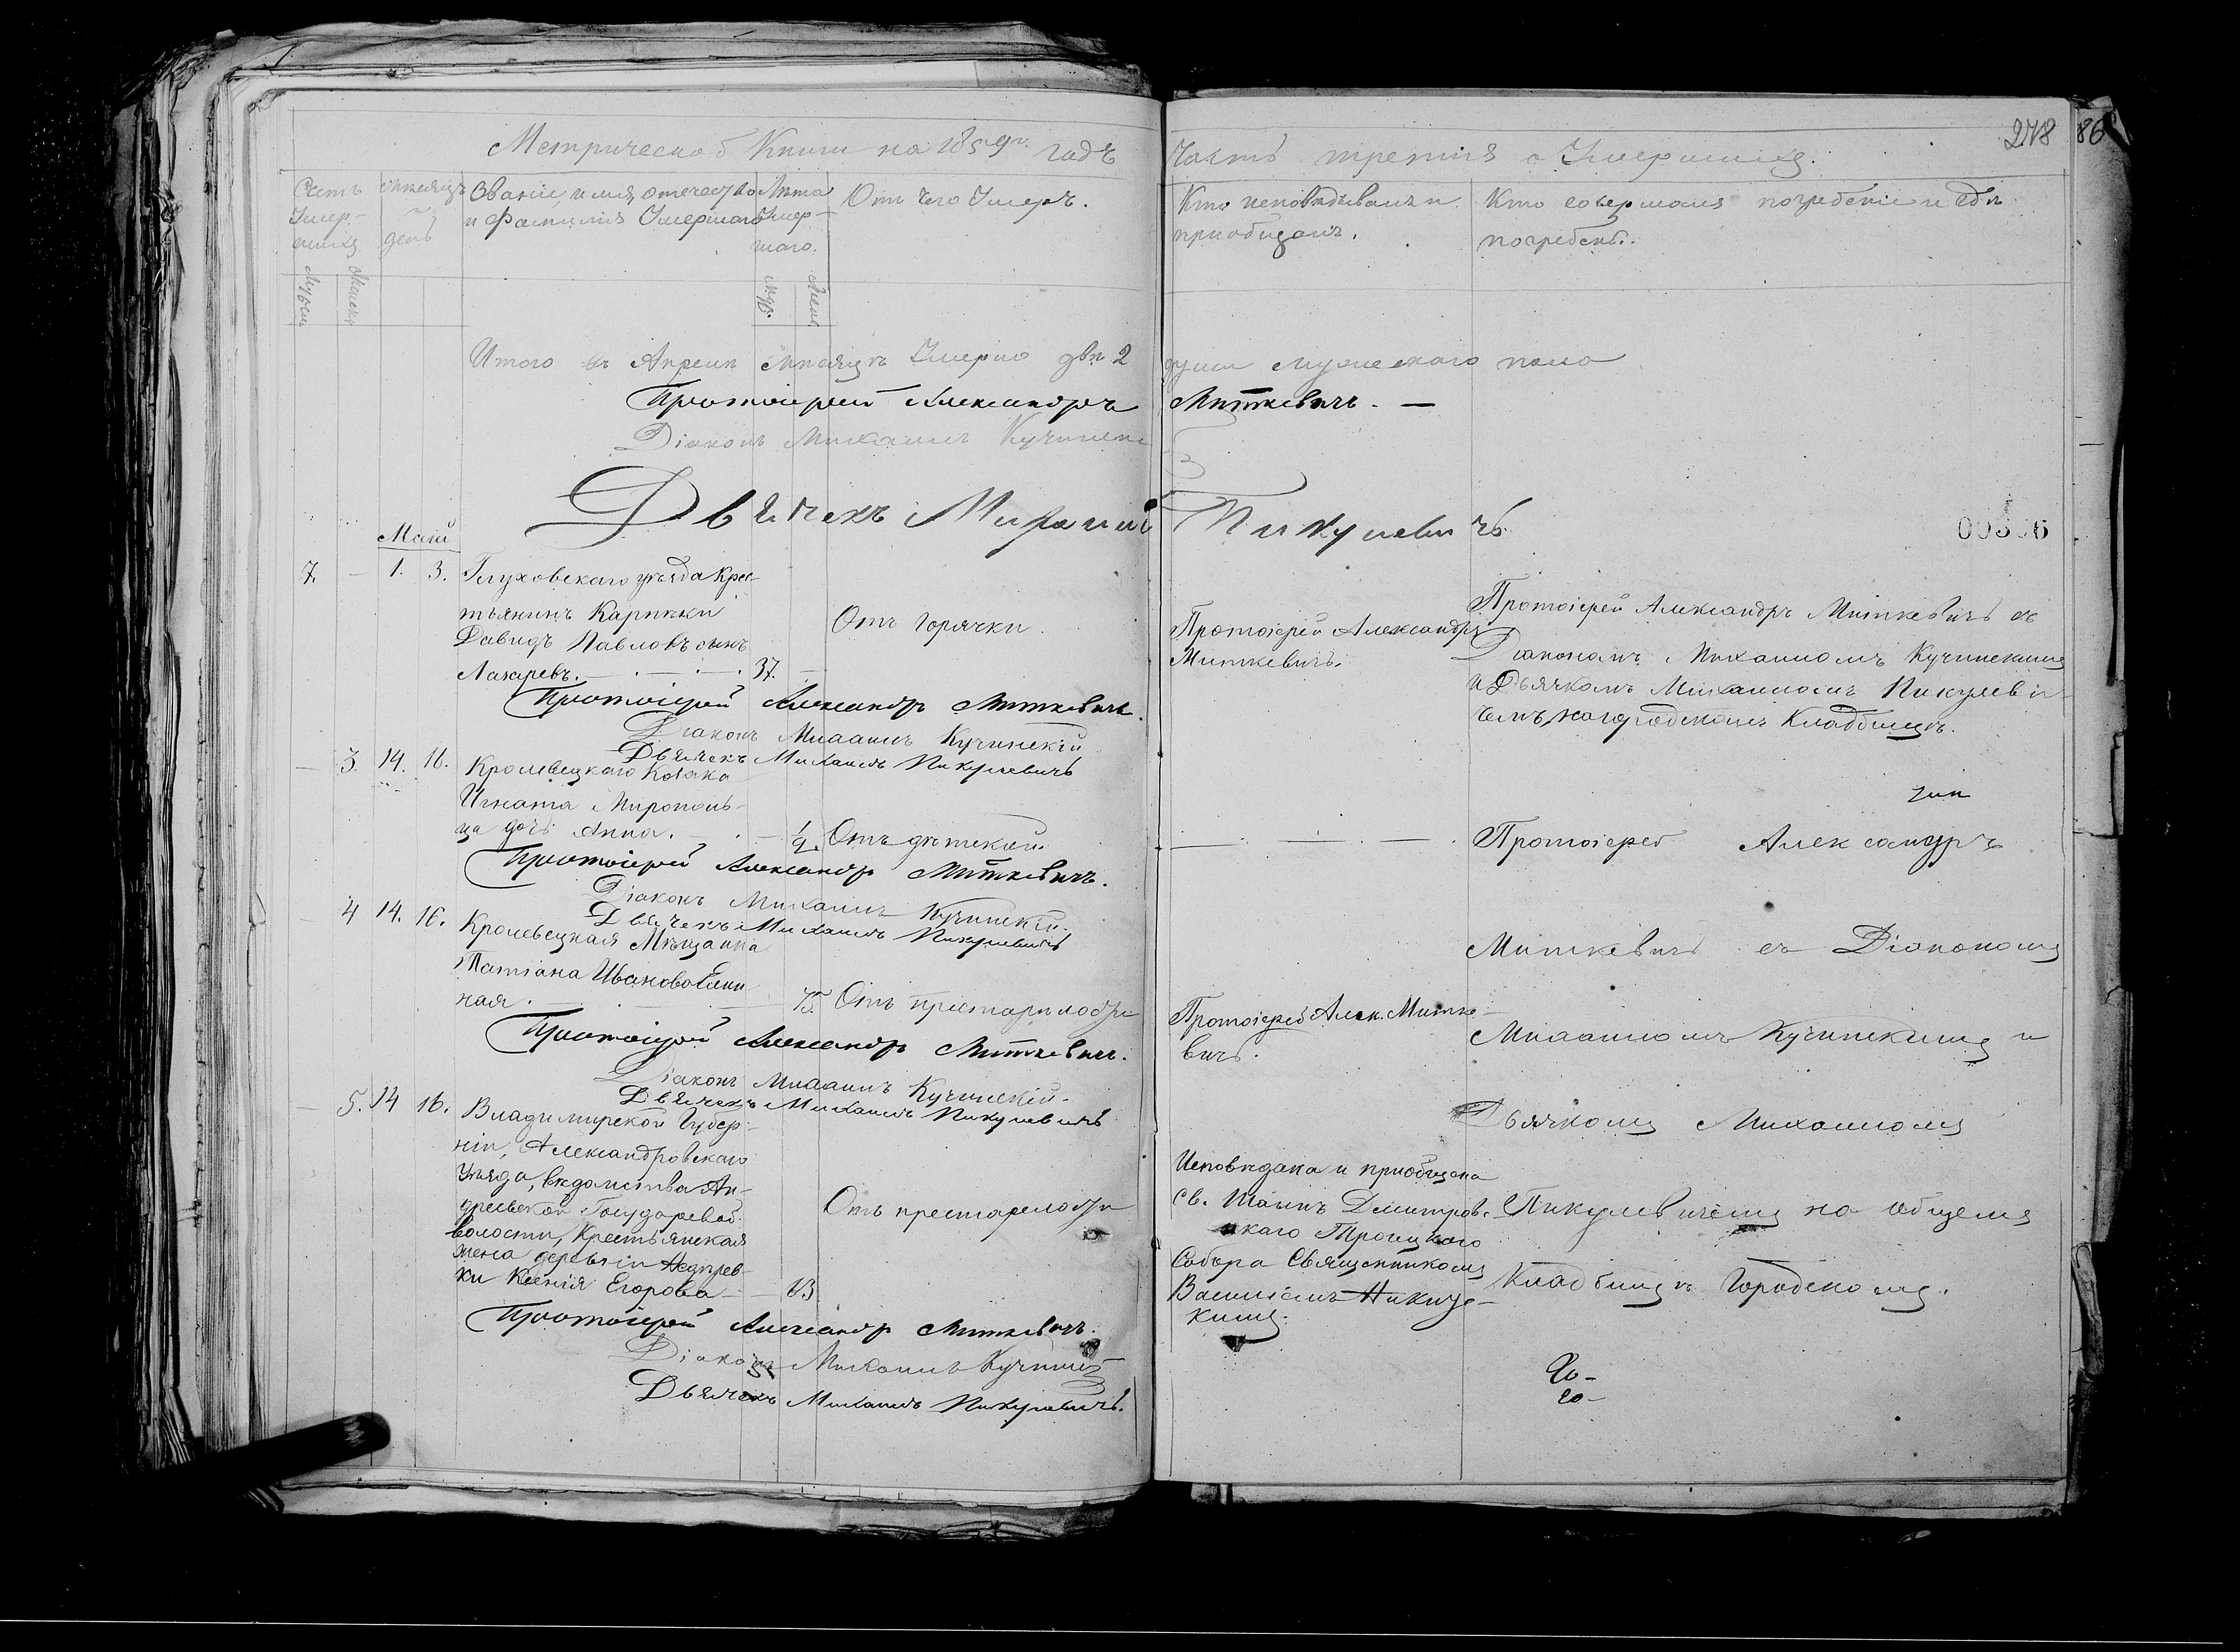 278 86
Метрической Книги на 1859й годъ
Часть третия о Умершихъ.
Счетъ Умер-шихъ
Мѣсяцъ и день
Званіе, имя, отечество и Фамилія Умершаго
Лѣта Умер-шаго.
Отъ чего Умеръ.
Кто исповѣдывалъ и приобщалъ.
Кто совершалъ погребеніе и гдѣ погребенъ.
Мужеск
Женска
муж.
жен.
Итого въ Апрѣлѣ мѣсяцѣ Умерло двѣ 2 души мужескаго пола
Протоіерей Александръ Миткевичъ. —
Діаконъ Михаилъ Кучинскі
Дьячекъ Михаилъ Пикулевичъ
00306
Май
7. — 1. 3. Глуховскаго уѣзда Крес-
тьянинъ
Давидъ Павловъ сынъ
Лазаревъ. — 37. —
Отъ горячки.
Протоіерей Александръ
Миткевичъ.
Протоіерей Александръ Миткевичъ съ
Діакономъ Михаиломъ Кучинскимъ
и Дьячкомъ Михаиломъ Пикулеви-
чемъ, на городскомъ Кладбищѣ.
Протоіерей Александръ Миткевичъ.
Діаконъ Михаилъ Кучинскій
Дьячекъ Михаилъ Пикулевичъ
— 3. 14. 16. Кролевецкаго Козака
Игната Мирополь-
ца дочь Анна. — 1/2.
Отъ дѣтской.
Протоіерей Александръ Миткевичъ.
Діаконъ Михаилъ Кучинскій.
Дьячекъ Михаилъ Пикулевичъ
— 4 14. 16. Кролевецкая Мѣщанка
Татіана Иванова
ная. — 75.
Отъ престарѣлости
Протоіерей Алек. Митке-
вичъ.
Протоіерей Александръ Миткевичъ.
Діаконъ Михаилъ Кучинскій.
Дьячекъ Михаилъ Пикулевичъ
— 5. 14 16. Владимирской Губер-
ніи, Александровскаго
Уѣзда, вѣдомства Ан-
дреевской Государевой
волости, Крестьянская
жена деревни
ки Ксенія Егорова — 63
Отъ престарелости
Исповѣдана и приобщена
Св. Таинъ Дмитров-
скаго Троицкаго
Собора Священникомъ
Василіемъ
кимъ.
Протоіерей Александръ
Миткевичъ съ Діакономъ
Михаиломъ Кучинскимъ и
Дьячкомъ Михаиломъ
Пикулевичемъ на общемъ
Кладбищѣ Городскомъ.
Протоіерей Александръ Миткевичъ.
Діаконъ Михаилъ Кучинскі
Дьячекъ Михаилъ Пикулевичъ.